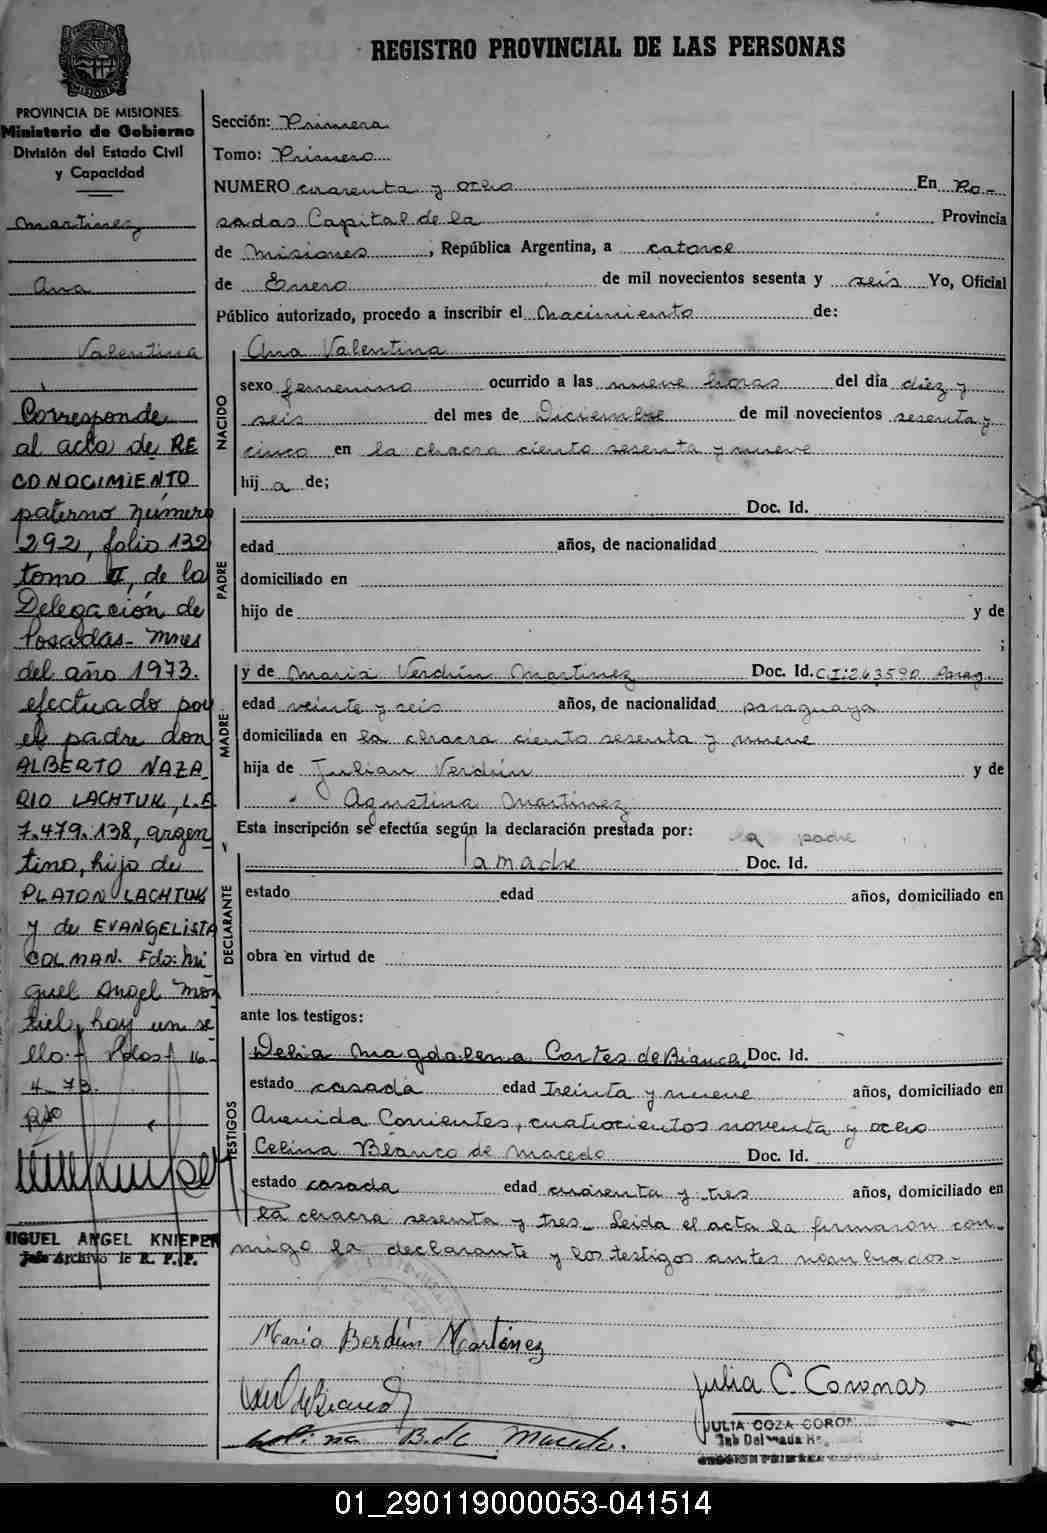 REGISTRO PROVINCIAL DE LAS PERSONAS
PROVINCIA DE MISIONES
Ministerio de Gobierno
División del Estado Civil
y Capacidad
Martinez
Ana
Valentina
Corresponde
al acta de RE
CONOCIMIENTO
paterno número
292, folio 132
tomo II, de la
Delegación de
Posadas- Mnes
del año 1973.
efectuado por
el padre don
ALBERTO NAZA
RIO LACHTUK, L.E.
7.479.138, argen
tino, hijo de
PLATON LACHTUK
y de EVANGELISTA
COLMAN. Fdo: Mi
guel Angel Mon
tiel, hay un se
llo.- Pdas, 16-
4-73.
MIGUEL ANGEL KNIEPER
Jefe Archivo de R. P. P.
Sección: Primera
Tomo: Primero
NUMERO cuarenta y ocho En Po-
sadas Capital de la Provincia
de Misiones, República Argentina, a catorce
de Enero de mil novecientos sesenta y seis Yo, Oficial
Público autorizado, procedo a inscribir el nacimiento de:
NACIDO
Ana Valentina
sexo femenino ocurrido a las nueve horas del día diez y
seis del mes de Diciembre de mil novecientos sesenta y
cinco en la chacra ciento sesenta y nueve
hija de;
PADRE
Doc. Id.
edad años, de nacionalidad
domiciliado en
hijo de y de
;
MADRE
y de Maria Verdún Martinez Doc. Id. C.I: 263.590 Parag.
edad veinte y seis años, de nacionalidad paraguaya
domiciliada en la chacra ciento sesenta y nueve
hija de Julian Verdún y de
Agustina Martinez
Esta inscripción se efectúa según la declaración prestada por: la padre
DECLARANTE
la madre Doc. Id.
estado edad años, domiciliado en
obra en virtud de
ante los testigos:
TESTIGOS
Delia Magdalena Cortes de Bianch Doc. Id.
estado casada edad treinta y nueve años, domiciliado en
Avenida Corrientes, cuatrocientos noventa y ocho
Celina Blanco de Macedo Doc. Id.
estado casada edad cuarenta y tres años, domiciliado en
la chacra sesenta y tres_ Leida el acta la firmaron con-
migo la declarante y los testigos antes nombrados-
Maria Berdún Martinez
Julia C. Coronas
Celina B. de Macedo.
JULIA COZA CORON
01_290119000053-041514